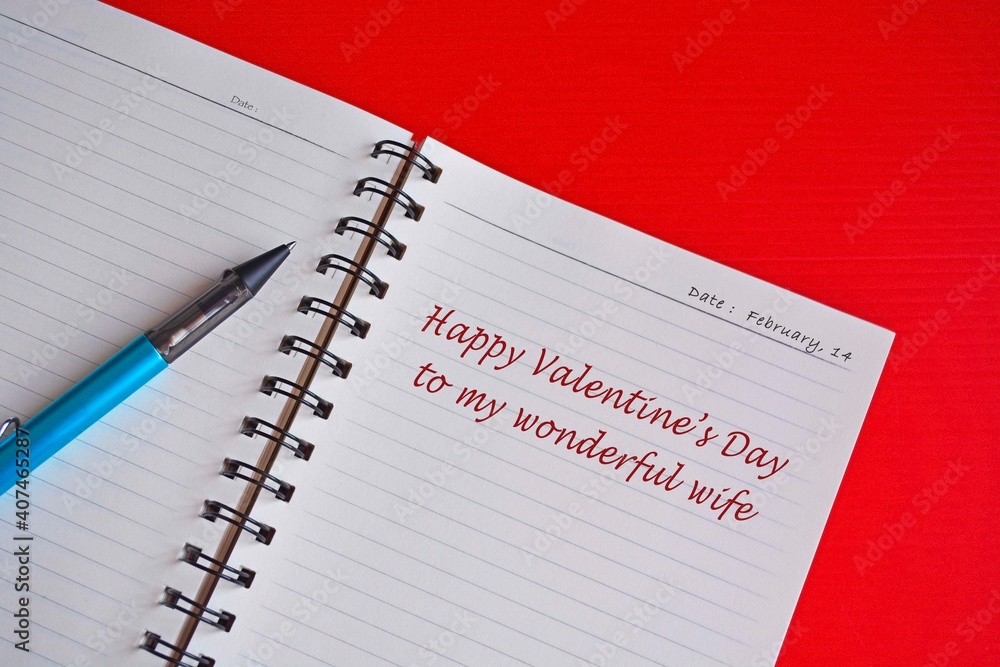 Date :
Date : February, 14
Happy Valentine's Day
to my wonderful wife
Adobe Stock | #407465287